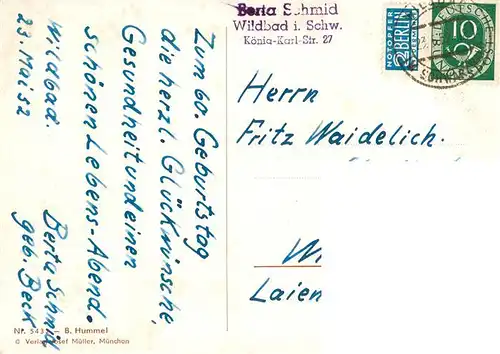 Berta Schmid
Wildbad i. Schw.
König-Karl-Str. 27
NOTOPFER
2 BERLIN
STEUERMARKE
10
Herrn
Fritz Waidelich.
Laien
Zum 60. Geburtstag
die herzl. Glückwünsche,
Gesundheit und einen
schönen Lebens-Abend.
Wildbad.
23. Mai 52
Berta Schmid
geb. Beck
B. Hummel
© Verlag Josef Müller, München